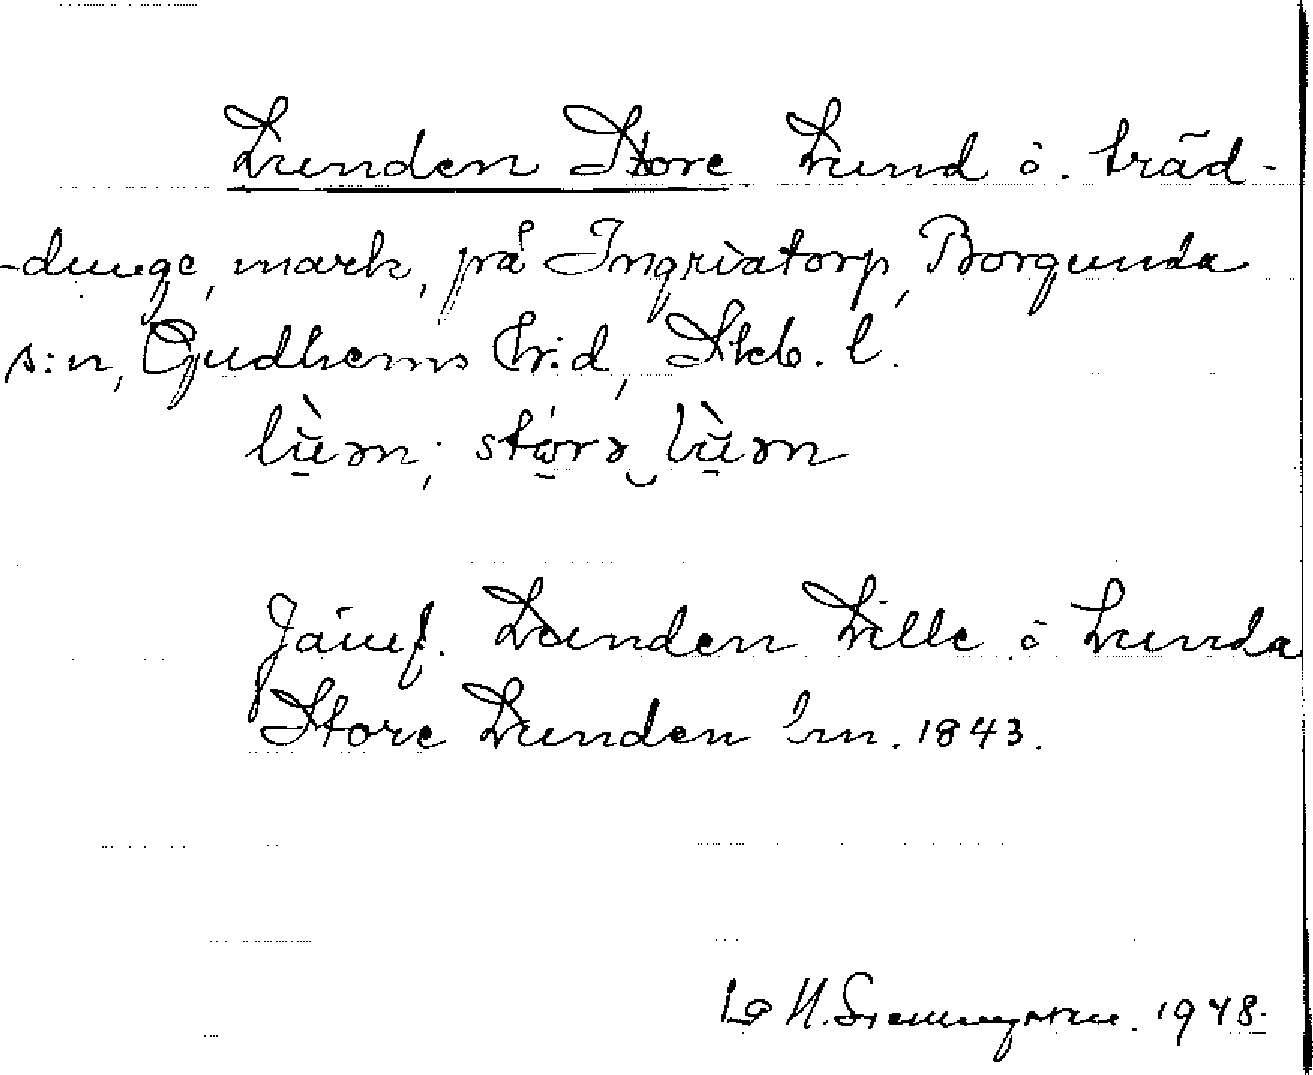 Lunden Store Lund o. träd-
-dunge, mark, på Ingriatorp, Borgunda
s:n, Gudhems hr:d, Skb. l.
lùən; stơrə lùən
Jämf. Lunden Lille o Lunda
Store Lunden lm. 1843.
1948.